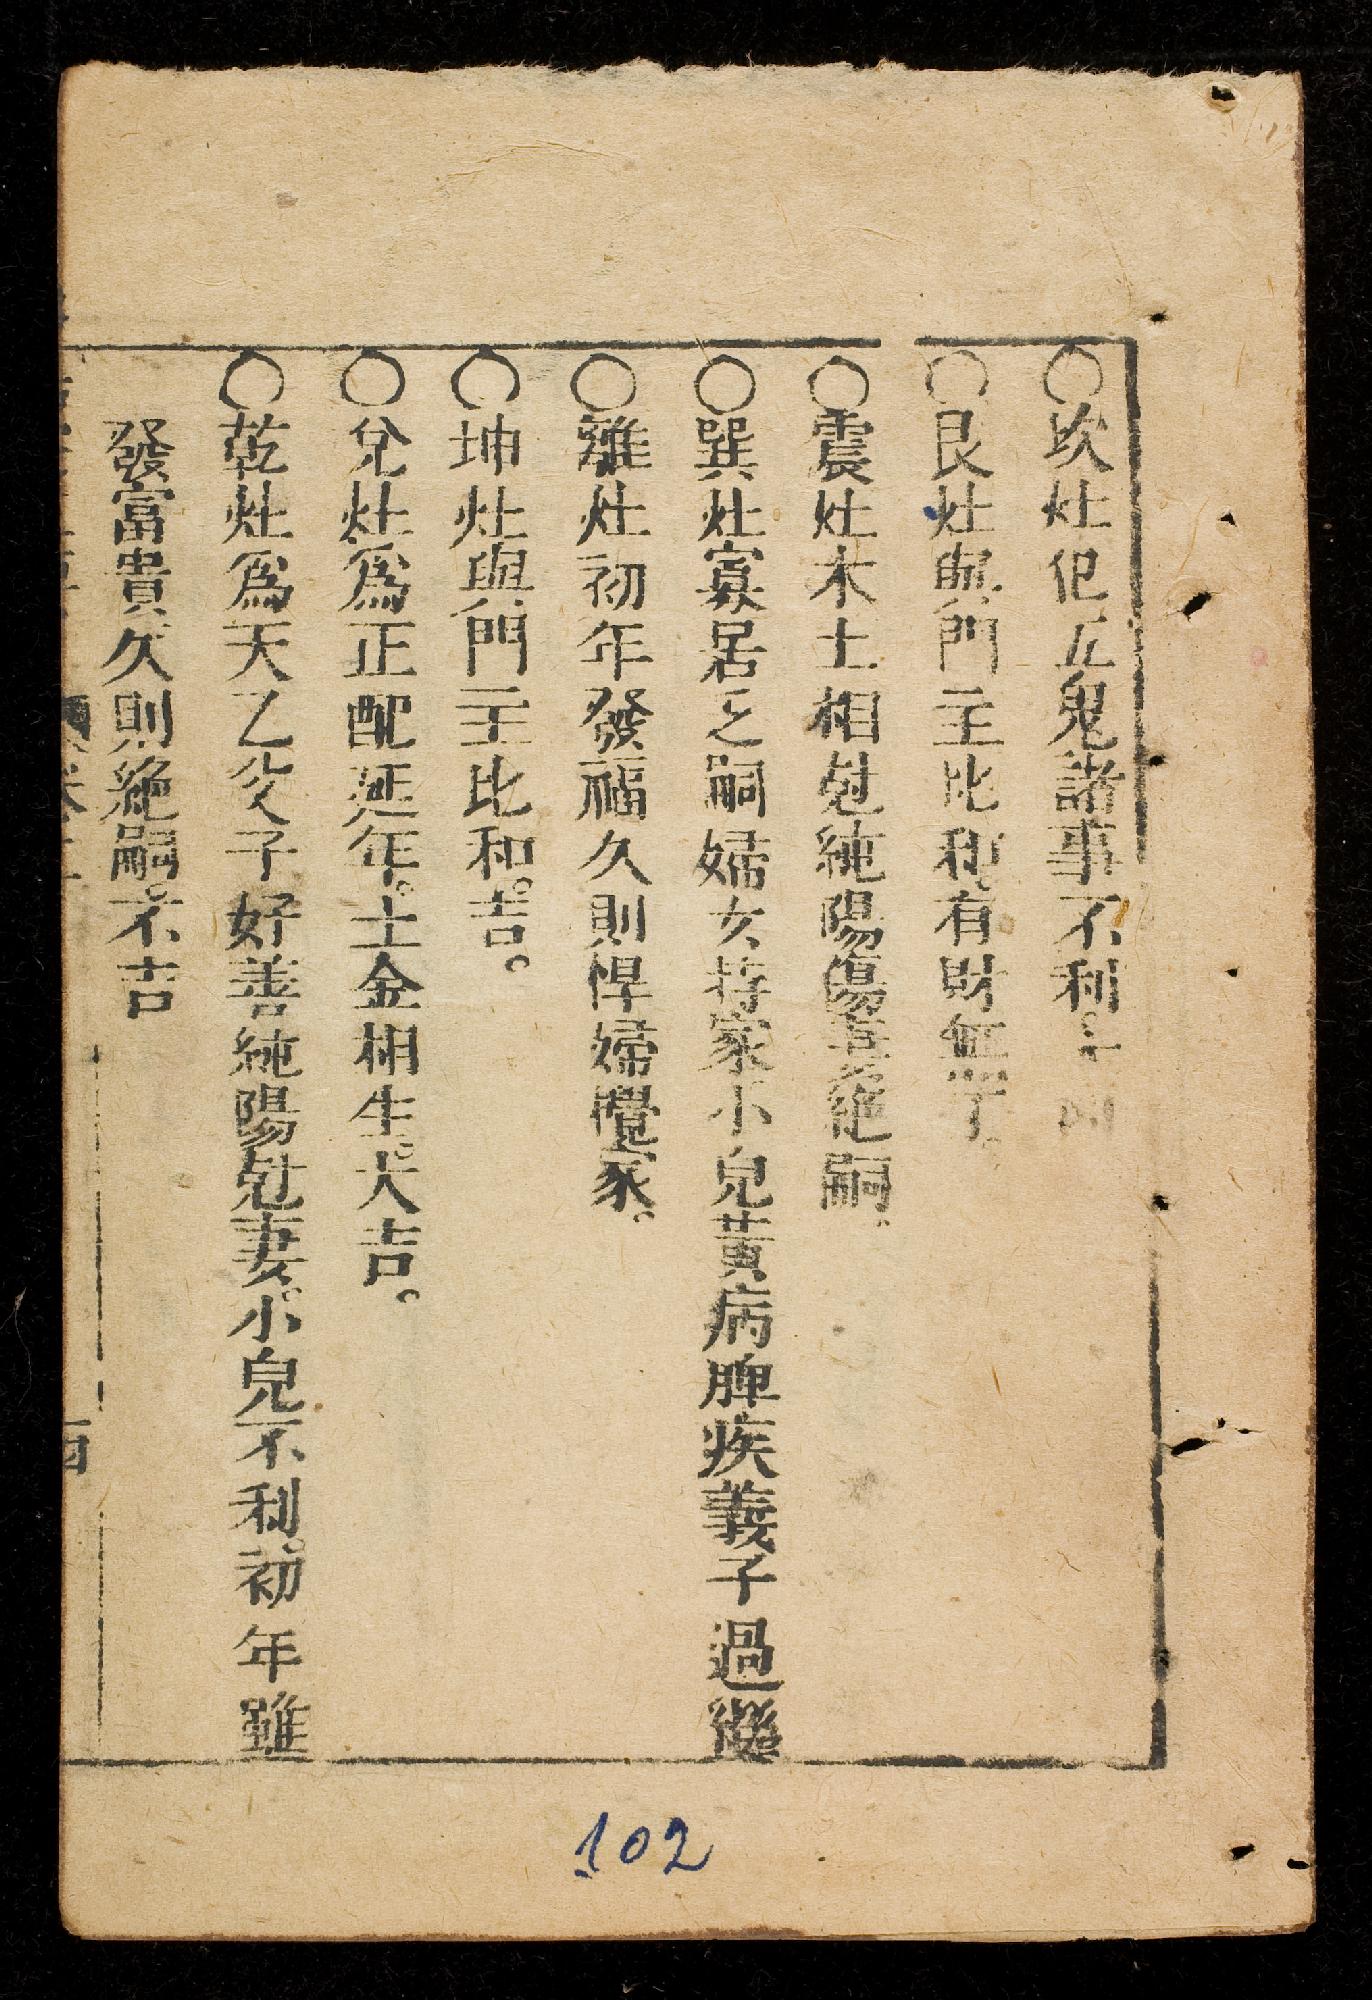 ○坎灶犯五鬼諸事不利。
○艮灶與門主比和。有財無丁。
○震灶木土相尅純陽傷妻絕嗣。
○巽灶寡居乏嗣婦女持家小兒黃病脾疾義子過繼
○離灶初年發福久則悍婦攪家。
○坤灶與門主比和。吉。
○兌灶爲正配延年。土金相生。大吉。
○乾灶爲天乙父子好善純陽尅妻。小兒不利。初年雖
發富貴久則絕嗣。不吉
102